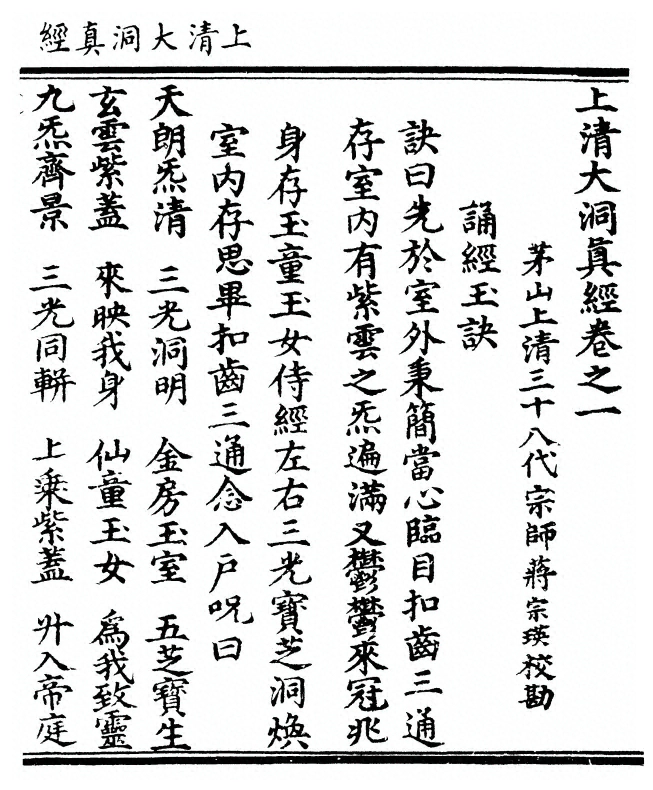 上清大洞真經
上清大洞真經卷之一
茅山上清三十八代宗師蔣宗瑛校勘
誦經玉訣
訣曰先於室外秉簡當心臨目扣齒三通
存室內有紫雲之炁遍滿又鬱鬱來冠兆
身存玉童玉女侍經左右三光寶芝洞煥
室內存思畢扣齒三通念入戶呪曰
天朗炁清 三光洞明 金房玉室 五芝寶生
玄雲紫蓋 來映我身 仙童玉女 為我致靈
九炁齊景 三光同軿 上乘紫蓋 升入帝庭